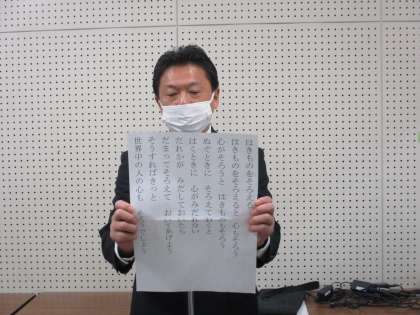 はきものをそろえる
はきものをそろえると 心もそろう
心がそろうと はきものもそろう
ぬぐときに そろえておくと
はくときに 心がみだれない
だれかが みだしておいたら
だまってそろえて おいてあげよう
そうすればきっと
世界中の人の心も